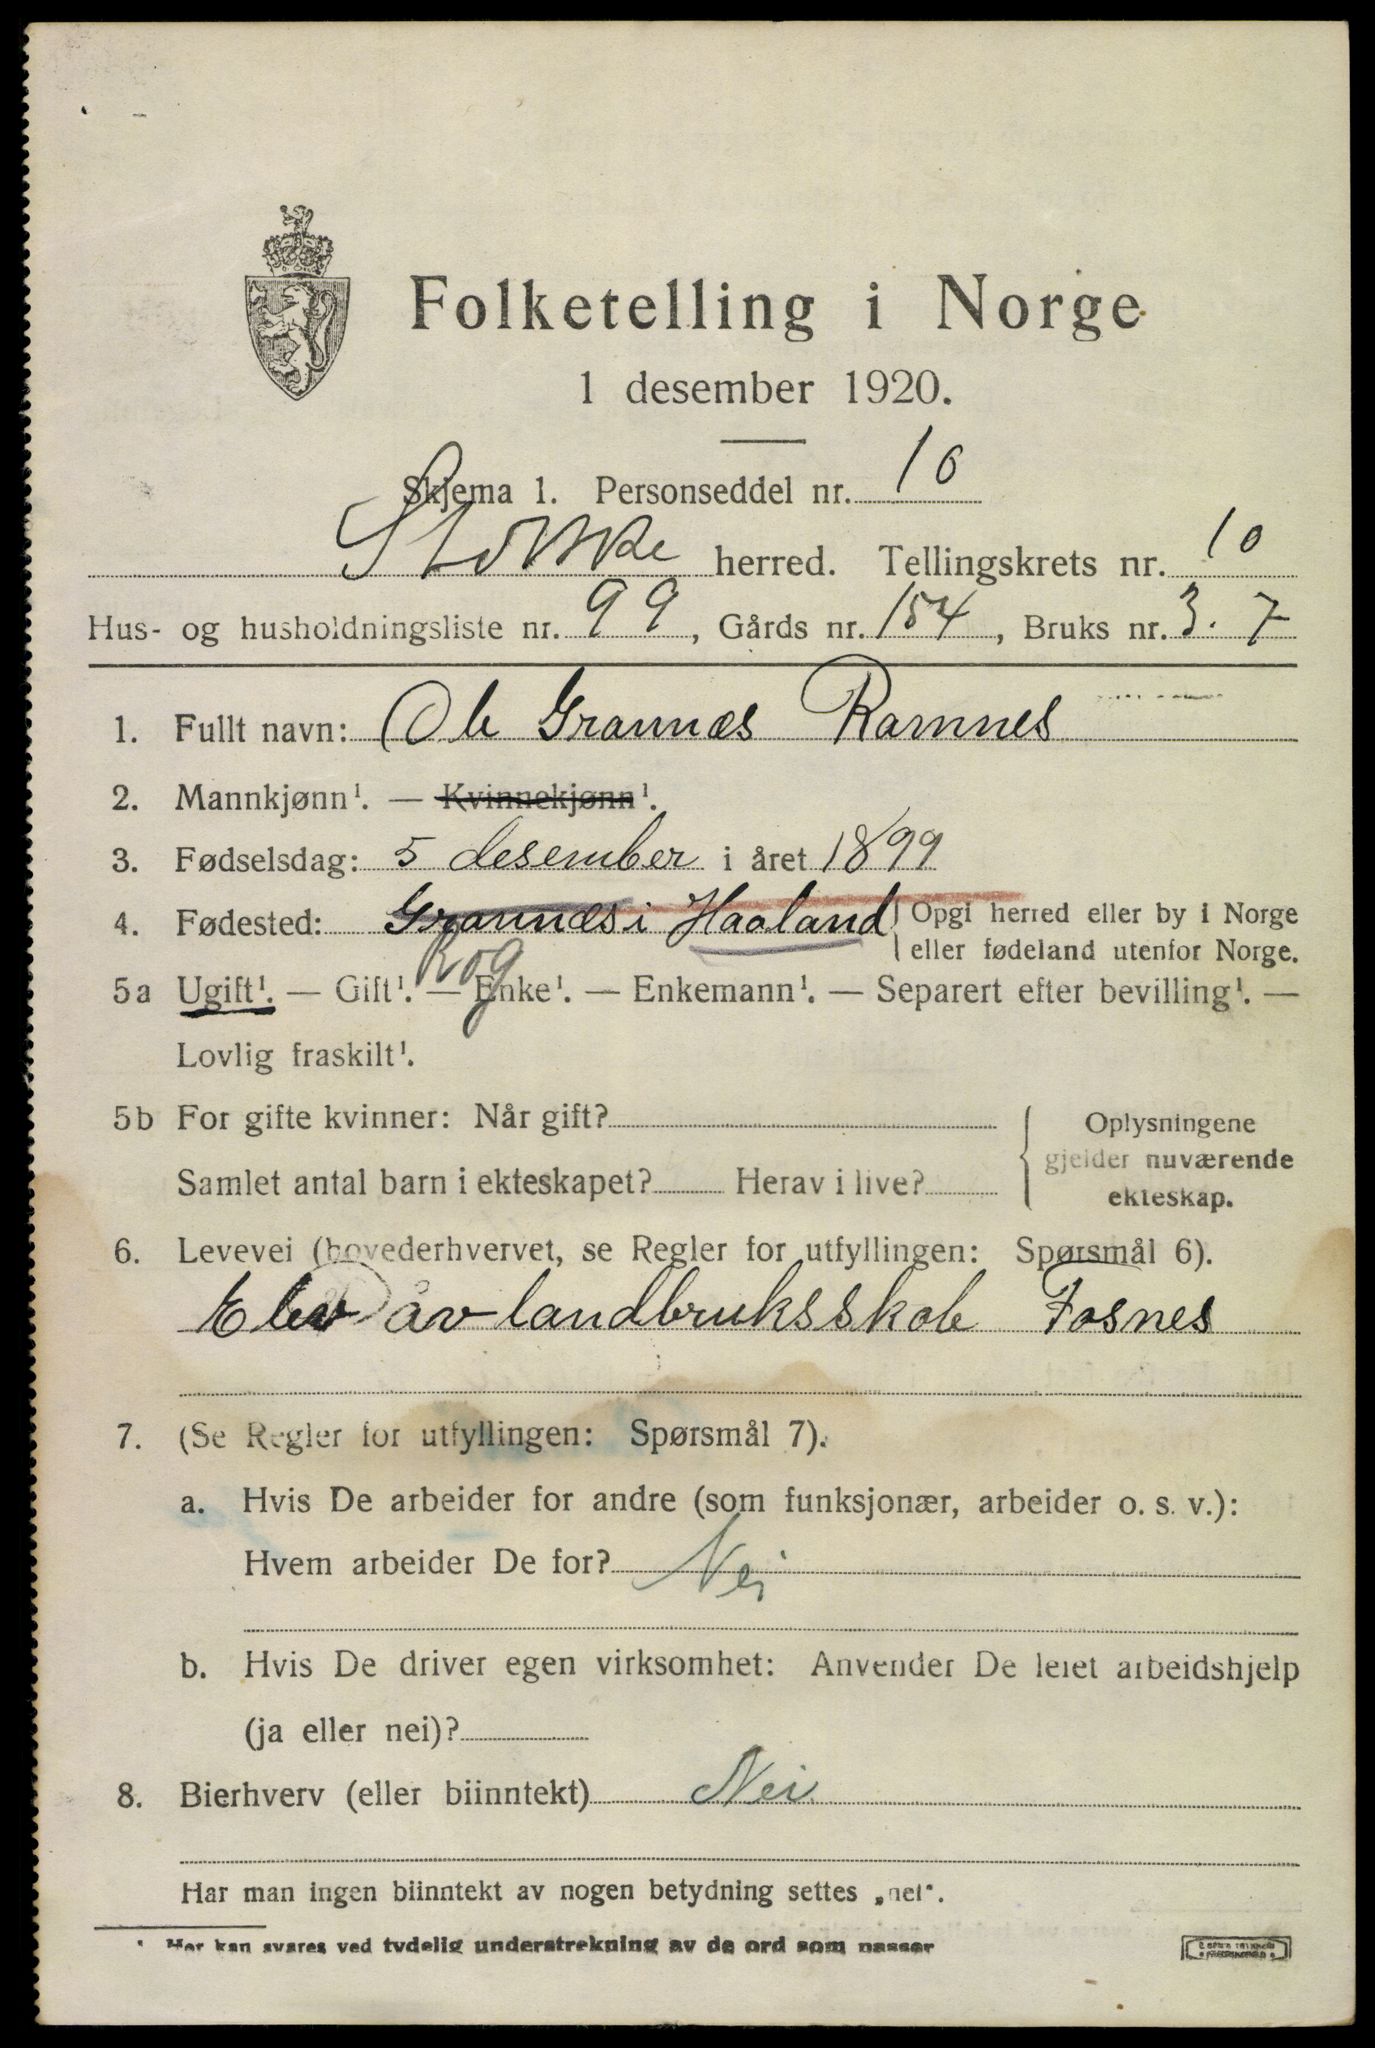 Folketelling i Norge
1 desember 1920.
Skjema 1. Personseddel nr. 10
Stokke herred. Tellingskrets nr. 10
Hus- og husholdningsliste nr. 99, Gårds nr. 154, Bruks nr. 3. 7
1. Fullt navn: Ole Grannæs Ramnes
2. Mannkjønn¹. — Kvinnekjønn¹.
3. Fødselsdag: 5 desember i året 1899
4. Fødested: Grannæs i Haaland Opgi herred eller by i Norge
eller fødeland utenfor Norge.
Rog
5a Ugift¹. — Gift¹. — Enke¹. — Enkemann¹. — Separert efter bevilling¹. —
Lovlig fraskilt¹.
5b For gifte kvinner: Når gift?
Samlet antal barn i ekteskapet? Herav i live?
Oplysningene
gjelder nuværende
ekteskap.
6. Levevei (hovederhvervet, se Regler for utfyllingen: Spørsmål 6).
Elev av landbruksskole Fosnes
7. (Se Regler for utfyllingen: Spørsmål 7).
a. Hvis De arbeider for andre (som funksjonær, arbeider o. s. v.):
Hvem arbeider De for? Nei
b. Hvis De driver egen virksomhet: Anvender De leiet arbeidshjelp
(ja eller nei)?
8. Bierhverv (eller biinntekt) Nei
Har man ingen biinntekt av nogen betydning settes „nei“.
¹ Her kan svares ved tydelig understrekning av de ord som passer